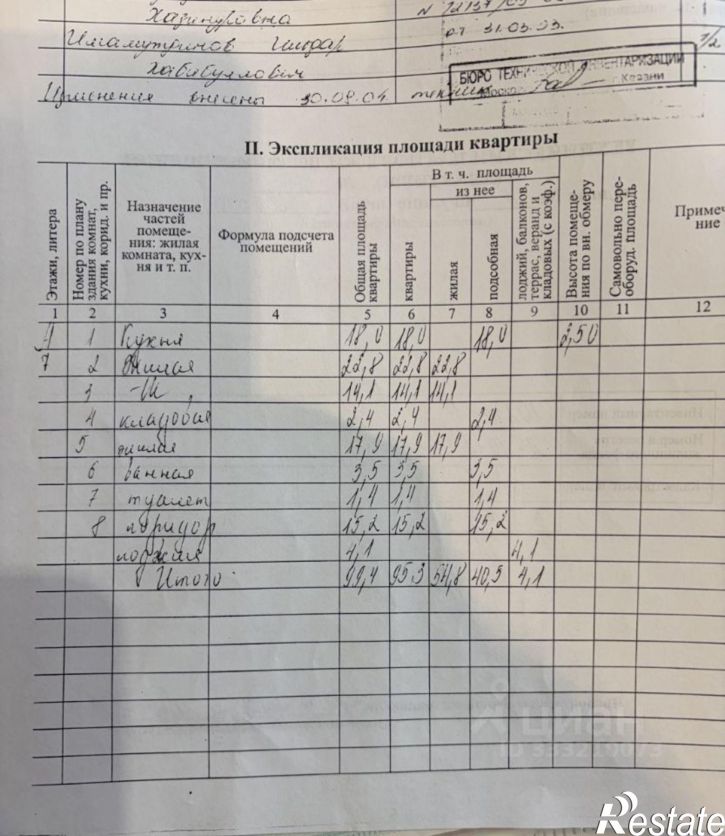 Хазинуровна
Имамутдинов Ильдар
от 31.03.93.
1/2
Хабибуллович
БЮРО ТЕХНИЧЕСКОЙ ИНВЕНТАРИЗАЦИИ
г. Казани
Изменения внесены 30.09.04. техник
II. Экспликация площади квартиры
Этажи, литера
Номер по плану здания комнат, кухни, корид. и пр.
Назначение частей помеще-ния: жилая комната, кух-ня и т. п.
Формула подсчета помещений
Общая площадь квартиры
В т. ч. площадь
из нее
квартиры
жилая
подсобная
лоджий, балконов, террас, веранд и кладовых (с коэф.)
Высота помеще-ния по вн. обмеру
Самовольно пере-оборуд. площадь
Примеч ние
1 2 3 4 5 6 7 8 9 10 11 12
1 Кухня 18,0 18,0 18,0 2,50
7 2 жилая 22,8 22,8 22,8
3 -//- 14,1 14,1 14,1
4 кладовая 2,4 2,4 2,4
5 жилая 17,9 17,9 17,9
6 ванная 3,5 3,5 3,5
7 туалет 1,4 1,4 1,4
8 коридор 15,2 15,2 15,2
лоджия 4,1 4,1
Итого 99,4 95,3 54,8 40,5 4,1
ЦИАН
Restate